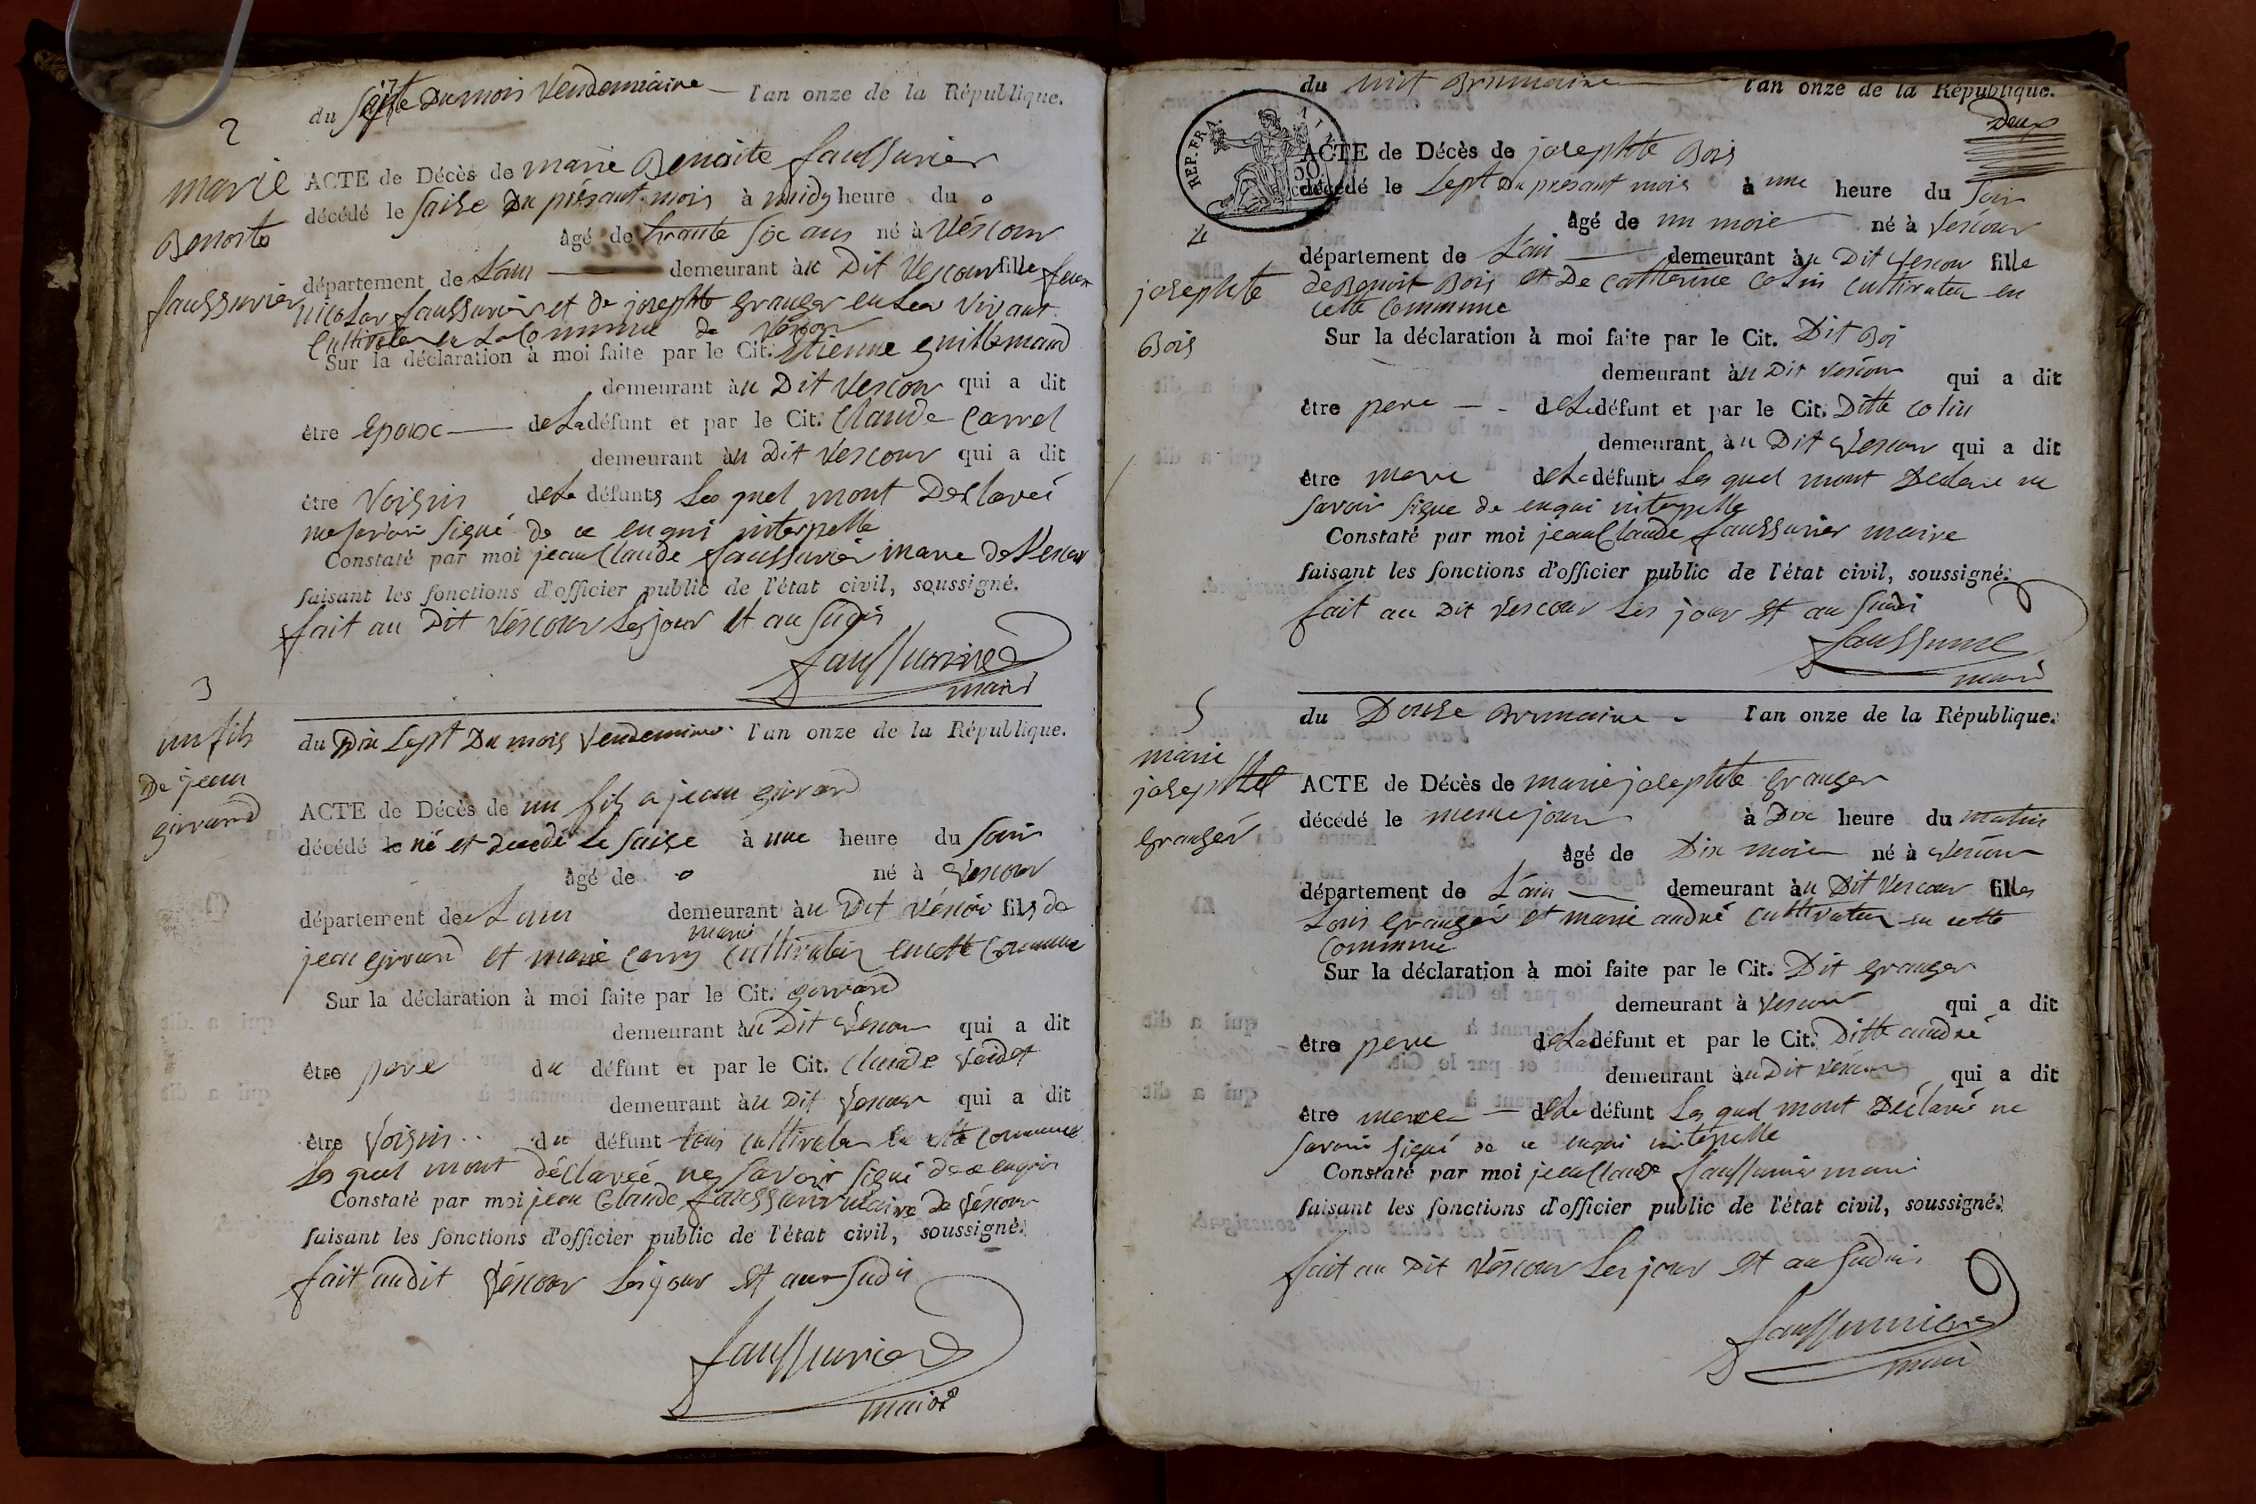 2
du Dumois Vendemiaire l'an onze de la République.
marie
Benoite
faussurier
ACTE de Décès de marie Benoite faussurier
décédé le saise du présant mois à midy heure du o
âgé de trante six ans né à Véscour
département de L'ain demeurant àu Dit Vescour fille feux
nicolas faussurier et de josephte granger en Leur vivant
Cultivateur en La Commune de Véscour
Sur la déclaration à moi faite par le Cit. Etienne guillemaud
demeurant àu Dit Vescour qui a dit
être Epoux de La défunt et par le Cit. Claude Carrel
demeurant àu Dit Vescour qui a dit
être Voisin de La défunts Les quel mont Desclareé
ne savoir signé de ce enqui interpelle
Constaté par moi jean Claude faussurier maire de Vescour
faisant les fonctions d'officier public de l'état civil, soussigné.
fait au Dit Véscour Les jour et an Sudis
faussurier
maire
3
un fils
De jean
girrand
du Dix Sept Du mois Vendemiere l'an onze de la République.
ACTE de Décès de un fils a jean girrand
décédé le né et decedé Le Saise à une heure du soir
âgé de o né à Vescour
département de L'ain demeurant àu Dit Véscour fils de
jean girrand et marie marie Cultivateur en cette Commune
Sur la déclaration à moi faite par le Cit. girrand
demeurant àu Dit Vescour qui a dit
être pere du défunt et par le Cit. Claude
demeurant àu Dit Vescour qui a dit
être Voisin du défunt tous cultivateur en cette Commune
Les quel mont déclareé ne savoir signé de ce enquis
Constaté par moi jean Claude faussurier maire de Véscour
faisant les fonctions d'officier public de l'état civil, soussigné.
fait audit Véscour Les jour et an Sudis
faussurier
maire
du uit Brumaire l'an onze de la République.
Deux
REP. FRA.
4
josephte
Bois
ACTE de Décès de josephte Bois
décédé le Sept Du présant mois à une heure du Soir
âgé de un mois né à Vescour
département de L'ain demeurant àu Dit Vescour fille
de Benoit Bois et De Catherine Colin Cultivateur en
cette Commune
Sur la déclaration à moi faite par le Cit. Dit Boi
demeurant àu Dit Vescour qui a dit
être pere de La défunt et par le Cit. Ditte Colin
demeurant àu Dit Vescour qui a dit
être mere de La défunt Les quel mont Declare ne
savoir signe de enqui interpelle
Constaté par moi jean Claude faussurier maire
faisant les fonctions d'officier public de l'état civil, soussigné.
fait au Dit Vescour Les jour et an Sudi
faussurier
maire
5
marie
josephte
granger
du Douse Brumaire l'an onze de la République.
ACTE de Décès de marie josephte granger
décédé le meme jour à Dix heure du matin
âgé de Dix mois né à Vescour
département de L'ain demeurant àu Dit Vescour filles
Louis granger et marie andré Cultivateur en cette
Commune
Sur la déclaration à moi faite par le Cit. Dit granger
demeurant à Vescour qui a dit
être pere de La défunt et par le Cit. Ditte andré
demeurant àu Dit Véscour qui a dit
être mere de La défunt Les quel mont Déclaré ne
savoir signé de ce enqui interpelle
Constaté par moi jean Claude faussurier maire
faisant les fonctions d'officier public de l'état civil, soussigné.
fait au Dit Véscour Les jour et an Sudis
faussurier
maire